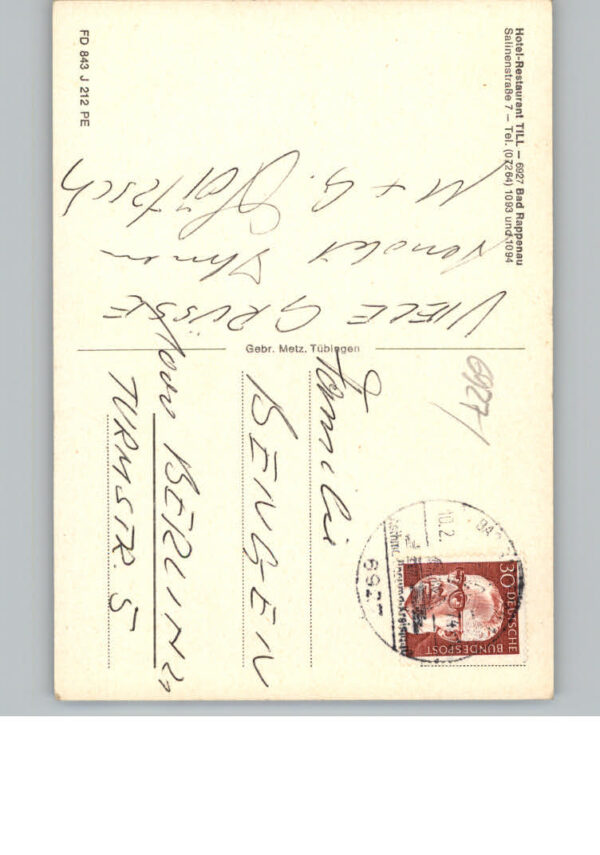 Hotel-Restaurant TILL – 6927 Bad Rappenau
Salinenstraße 7 – Tel. (07264) 1093 und 1094
VIELE GRÜSSE
sendet Ihnen
M + G.
FD 843 J 212 PE
Gebr. Metz, Tübingen
6927
10.2.
6927
30 DEUTSCHE
BUNDESPOST
Familie
BENGEN
1000 BERLIN 21
TURMSTR. 5